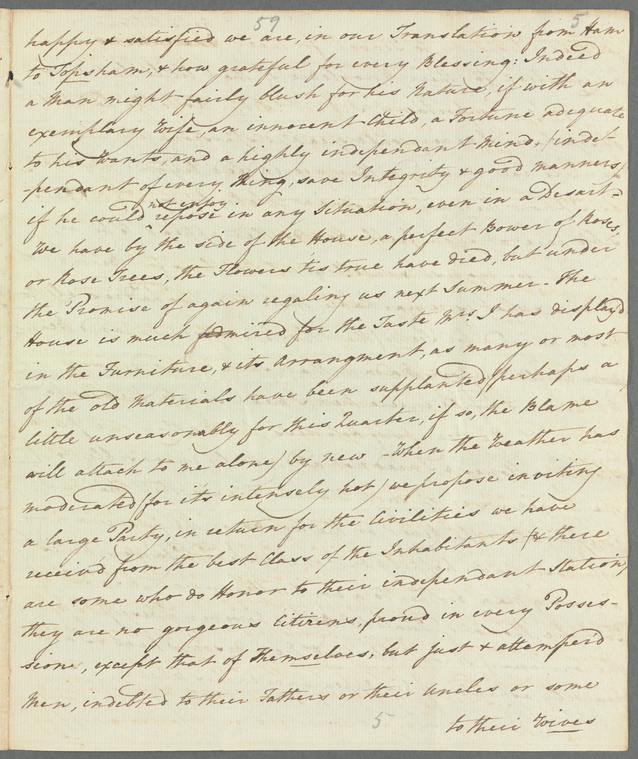 59 5
happy & satisfied we are, in our Translation from Ham
to Topsham, & how grateful for every Blessing: Indeed
a Man might fairly blush for his Nature, if with an
exemplary Wife, an innocent Child, a Fortune adequate
to his Wants, and a highly independant Mind, (inde-
-pendant of every thing, save Integrity & good manners)
not enjoy
if he could repose in any Situation, even in a Desart-
We have by the side of the House, a perfect Bower of Roses,
or Rose Trees, the Flowers tis true have died, but under
the Promise of again regaling us next Summer - The
House is much admired for the Taste Mrs. I has display'd
in the Furniture, & its Arrangment, as many or most
of the old Materials have been supplanted (perhaps a
little unseasonably for this Quarter, if so, the Blame
will attach to me alone) by new - When the Weather has
moderated (for its intensely hot) we propose inviting
a large Party, in return for the Civilities we have
receiv'd from the best Class of the Inhabitants (& there
are some who do Honor to their independant Station)
they are no gorgeous Citizens, proud in every Posses-
sion, except that of Themselves, but just & attemper'd
Men, indebted to their Fathers or their Uncles or some
to their Wives
5